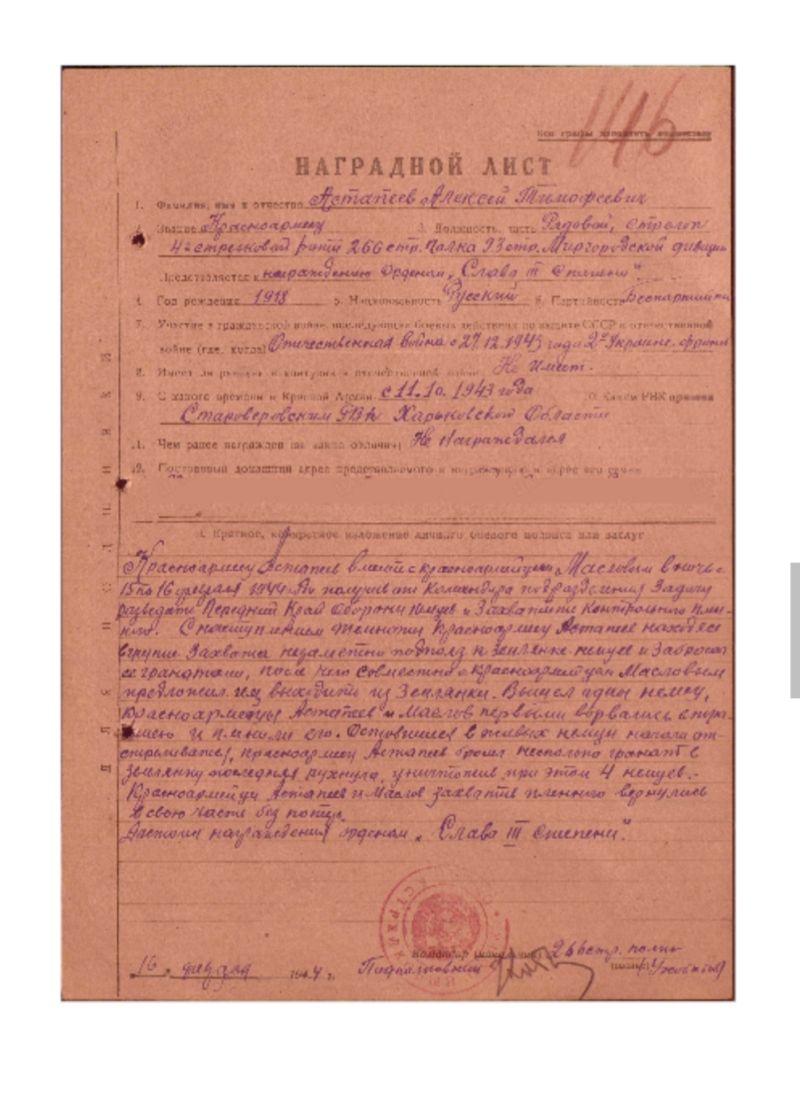 146
Все графы заполнять полностью
НАГРАДНОЙ ЛИСТ
1. Фамилия, имя и отчество Астапеев Алексей Тимофеевич
2. Звание Красноармеец 3. Должность, часть Рядовой, стрелок
4й стрелковой роты 266 стр. полка 93 стр. Миргородской дивизии
Представляется к награждению Орденом „Слава III степени"
4. Год рождения 1918 5. Национальность Русский 6. Партийность Беспартийный
7. Участие в гражданской войне, последующих боевых действиях по защите СССР и отечественной
войне (где, когда) Отечественная война с 27.12.1943 года 2й Украинс. фронт
8. Имеет ли ранения и контузии в отечественной войне Не имеет.
9. С какого времени в Красной Армии с 11.10.1943 года 10. Каким РВК призван
Староверовским РВК Харьковской Области
11. Чем ранее награжден (за какие отличия) Не Награждался
12. Постоянный домашний адрес представляемого к награждению и адрес его семьи
I. Краткое, конкретное изложение личного боевого подвига или заслуг
Красноармеец Астапеев вместе с красноармейцем Масловым в ночь с
15 по 16 февраля 1944 получив от Командира подразделения Задачу
разведать Передний Край Обороны немцев и Захватить Контрольного плен-
ного. С наступлением темноты Красноармеец Астапеев находясь
в группе Захвата незаметно подполз к землянке немцев и Забросал
ее гранатами, после чего совместно с Красноармейцем Масловым
предложил им выходить из Землянки. Вышел один немец,
Красноармейцы Астапеев и Маслов первыми ворвались
и пленили его. Оставшиеся в живых немцы начали от-
стреливаться, Красноармеец Астапеев бросил несколько гранат в
Землянку последняя рухнула, уничтожив при этом 4 немцев.-
Красноармейцы Астапеев и Маслов захватив пленного вернулись
в свою часть без потерь.
Достоин награждения орденом „Слава III степени".
Командир (начальник) 266 стр. полка
16 „ февраля 1944 г. Подполковник